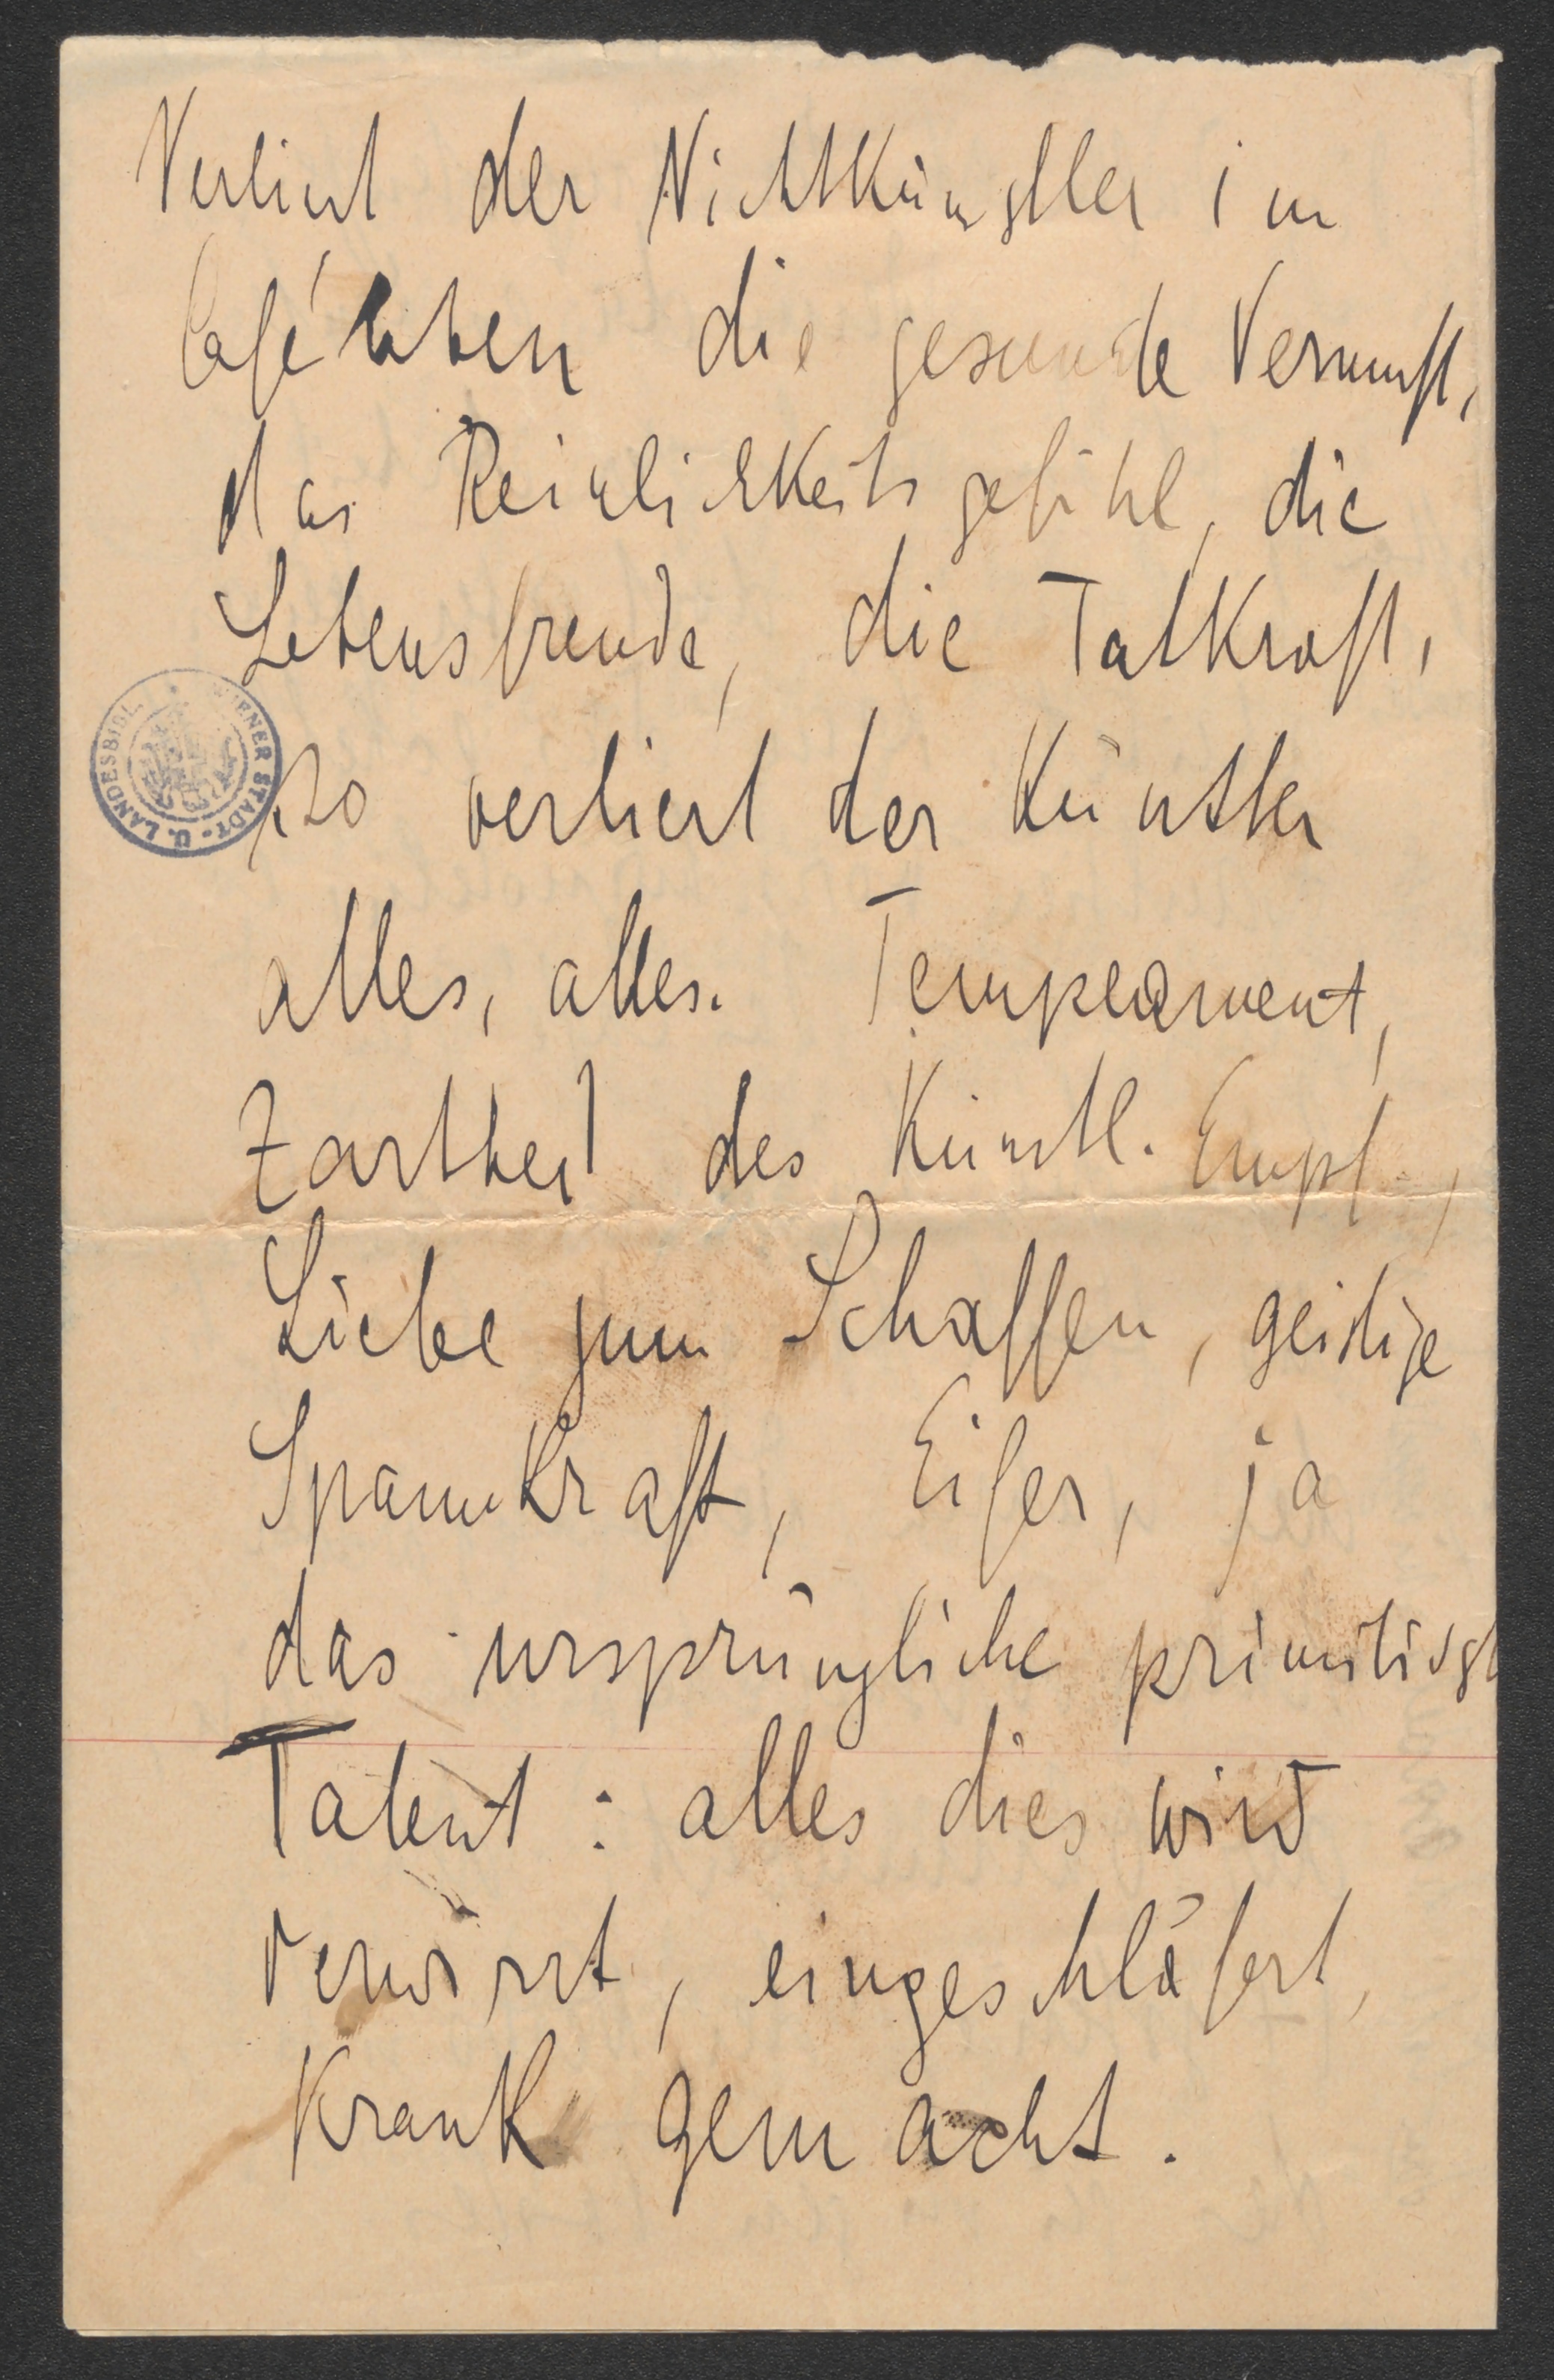 Verliert der Nichtkünstler im
Caféleben die gesunde Vernunft,
das Reinlichkeitsgefühl, die
Lebensfreude, die Tatkraft,
so verliert der Künstler
alles, alles. Temperament,
Zartheit des Künstl. Empf.,
Liebe zum Schaffen, geistige
Spannkraft, Eifer, ja
das ursprüngliche primitivste
Talent: alles dies wird
verwirrt, eingeschläfert,
krank gemacht.
WIENER STADT- U. LANDESBIBL.